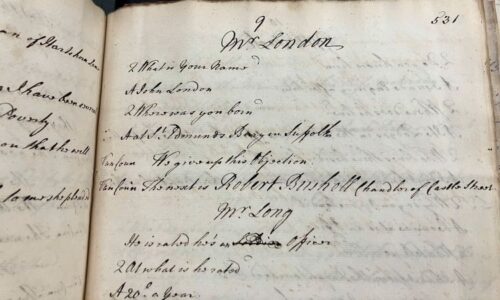 9
531
Mr. London
Q What is Your Name
A John London
Q Where was you born
A at St. Edmunds Bury in Suffolk
We give up this Objection
The next is Robert Bushell Chandler of Castle Street
Mr. Long
He is rated he's an Officer
Q At what is he rated
A 20s. a Year
I have been
Poverty
on that he will